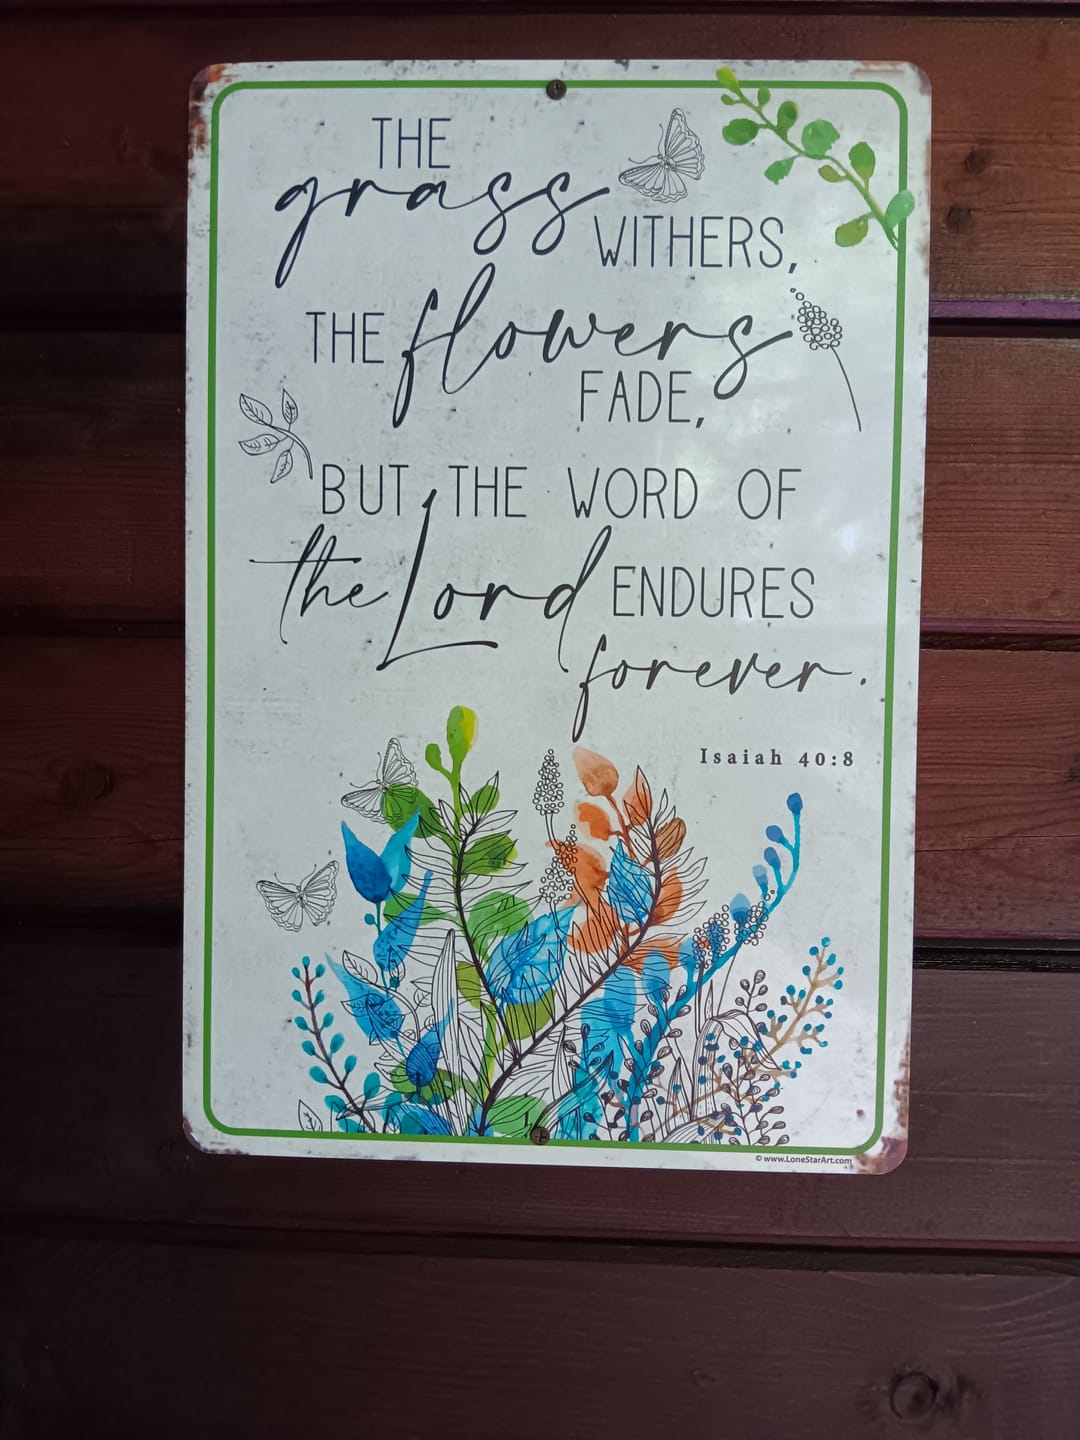 THE
grass WITHERS,
THE flowers
FADE,
BUT THE WORD OF
the Lord ENDURES
forever.
Isaiah 40:8
© www.LoneStarArt.com